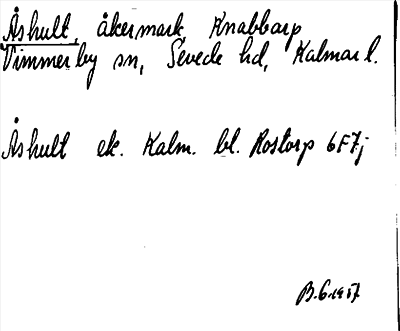 Åshult, åkermark Knabbarp
Vimmerby sn, Sevede hd, Kalmar l.
Åshult ek. Kalm. bl. Rostorp 6F7j
B.G. 1957